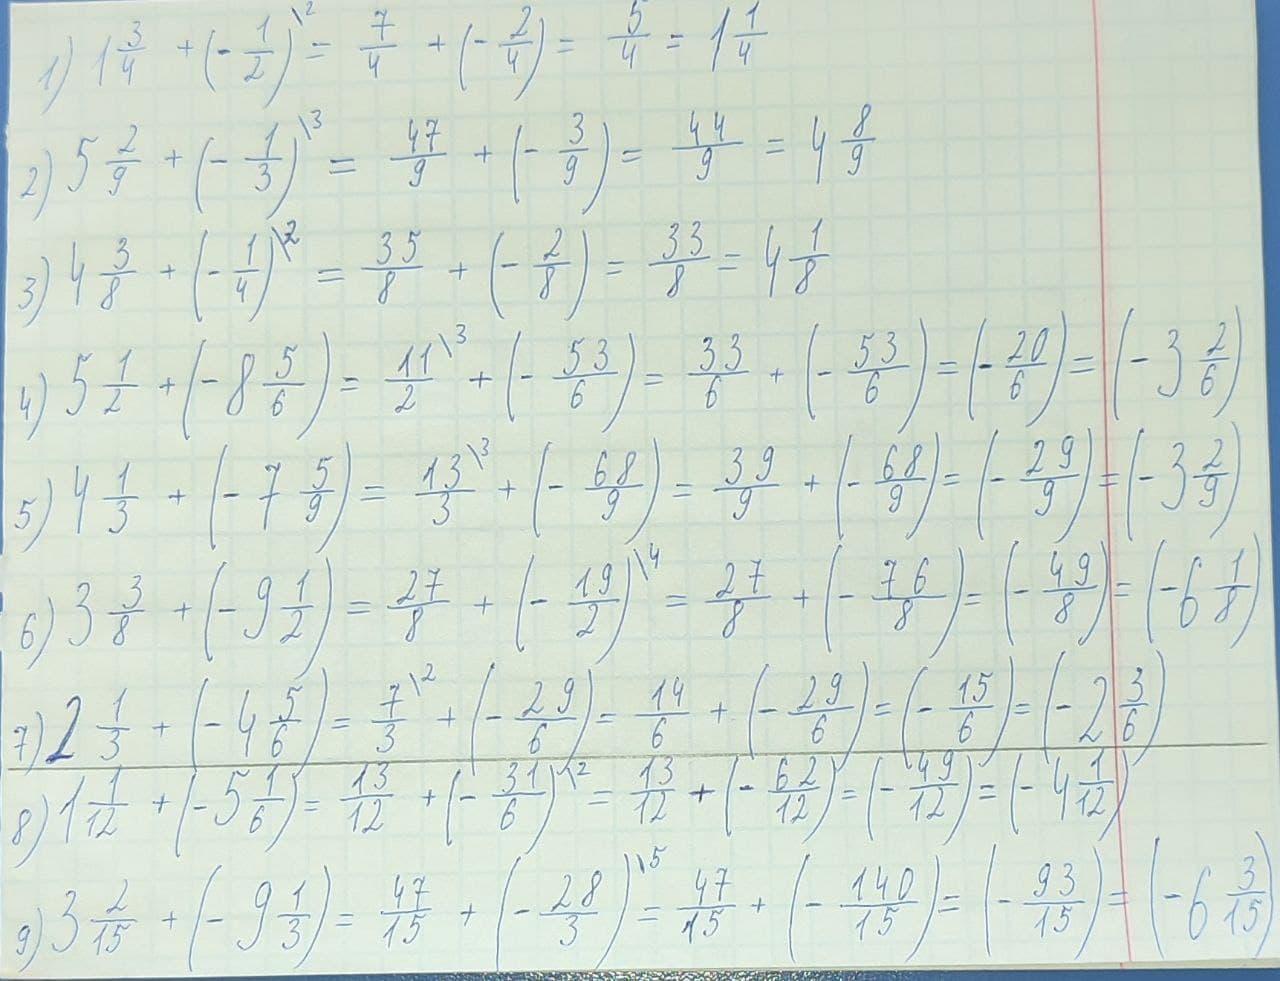 1) 1 3/4 + (- 1/2)\2 = 7/4 + (- 2/4) = 5/4 = 1 1/4
2) 5 2/9 + (- 1/3)\3 = 47/9 + (- 3/9) = 44/9 = 4 8/9
3) 4 3/8 + (- 1/4)\2 = 35/8 + (- 2/8) = 33/8 = 4 1/8
4) 5 1/2 + (- 8 5/6) = 11/2\3 + (- 53/6) = 33/6 + (- 53/6) = (- 20/6) = (- 3 2/6)
5) 4 1/3 + (- 7 5/9) = 13/3\3 + (- 68/9) = 39/9 + (- 68/9) = (- 29/9) = (- 3 2/9)
6) 3 3/8 + (- 9 1/2) = 27/8 + (- 19/2)\4 = 27/8 + (- 76/8) = (- 49/8) = (- 6 1/8)
7) 2 1/3 + (- 4 5/6) = 7/3\2 + (- 29/6) = 14/6 + (- 29/6) = (- 15/6) = (- 2 3/6)
8) 1 1/12 + (- 5 1/6) = 13/12 + (- 31/6)\2 = 13/12 + (- 62/12) = (- 49/12) = (- 4 1/12)
9) 3 2/15 + (- 9 1/3) = 47/15 + (- 28/3)\5 = 47/15 + (- 140/15) = (- 93/15) = (- 6 3/15)